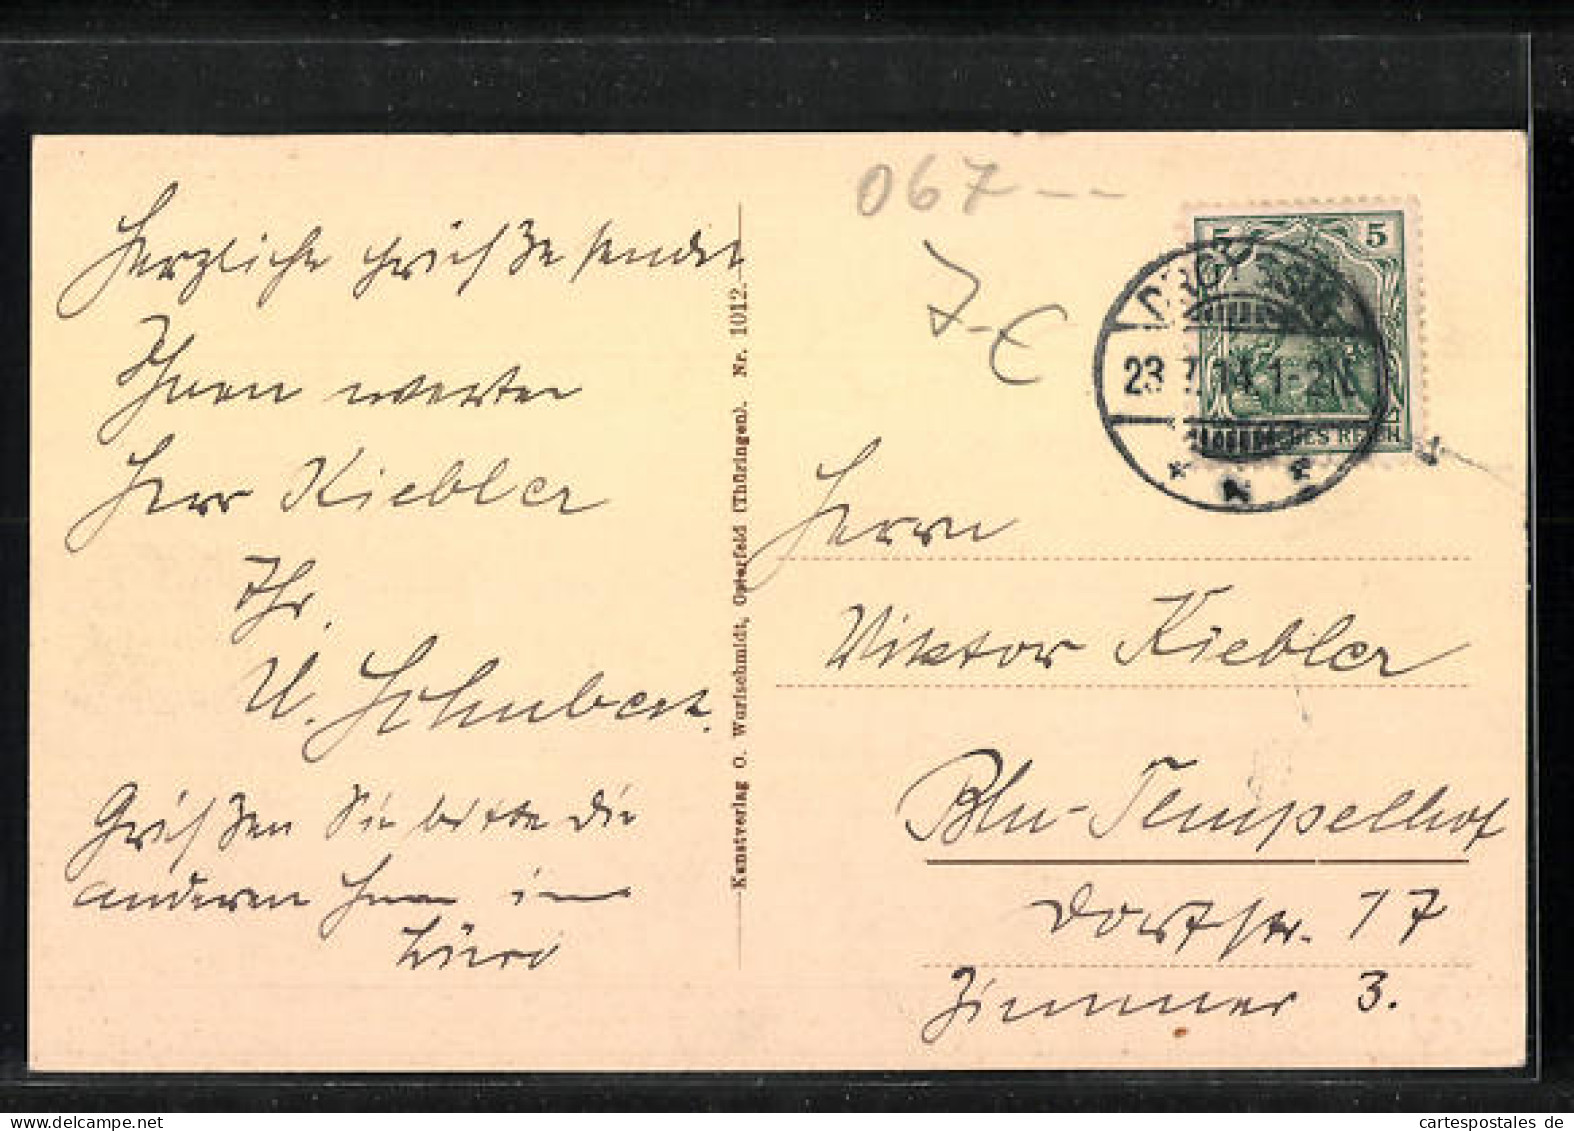 Herzliche Grüße sendet
Ihnen werter
Herr Kiebler
Ihr
U. Schubert.
Grüßen Sie bitte die
anderen Herren im
Büro
Kunstverlag O. Wurlschmidt, Osterfeld (Thüringen). Nr. 1012.
067 --
7-€
5 5
23.7.14.1-2N.
DEUTSCHES REICH
* N *
Herrn
Viktor Kiebler
Bln-Tempelhof
Dorfstr. 17
Zimmer 3.
www.cartespostales.de
cartespostales.de